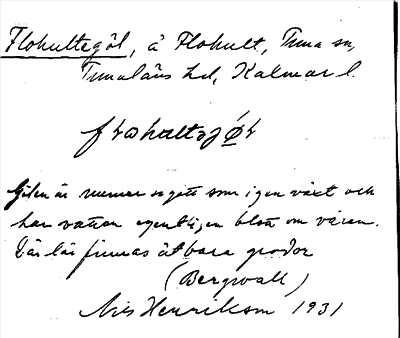 Flohultegöl, å Flohult, Tuna sn,
Tunaläns hd, Kalmar l.
Gölen är numer så gott som igen växt och
har vatten egentligen blott om våren.
Där lär finnas ätbara grodor
(Bergwall)
Nils Henrikson 1931